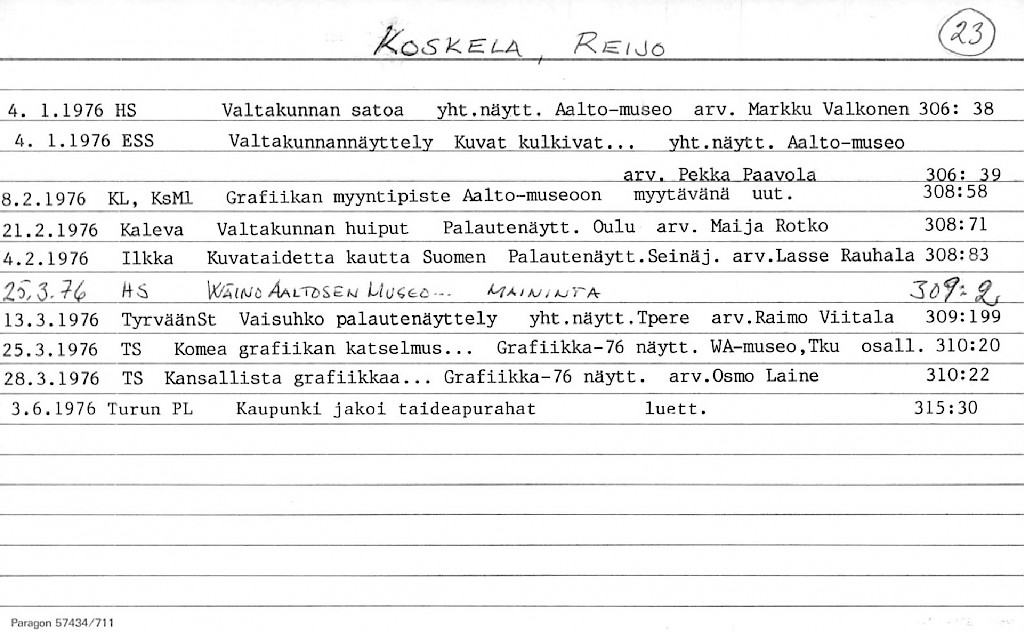 KOSKELA, REIJO 23
4. 1.1976 HS Valtakunnan satoa yht.näytt. Aalto-museo arv. Markku Valkonen 306: 38
4. 1.1976 ESS Valtakunnannäyttely Kuvat kulkivat... yht.näytt. Aalto-museo
arv. Pekka Paavola 306: 39
8.2.1976 KL, KsMl Grafiikan myyntipiste Aalto-museoon myytävänä uut. 308:58
21.2.1976 Kaleva Valtakunnan huiput Palautenäytt. Oulu arv. Maija Rotko 308:71
4.2.1976 Ilkka Kuvataidetta kautta Suomen Palautenäytt.Seinäj. arv.Lasse Rauhala 308:83
25.3.76 HS WÄINÖ AALTOSEN MUSEO... MAININTA 309:2
13.3.1976 TyrväänSt Vaisuhko palautenäyttely yht.näytt.Tpere arv.Raimo Viitala 309:199
25.3.1976 TS Komea grafiikan katselmus... Grafiikka-76 näytt. WA-museo,Tku osall. 310:20
28.3.1976 TS Kansallista grafiikkaa... Grafiikka-76 näytt. arv.Osmo Laine 310:22
3.6.1976 Turun PL Kaupunki jakoi taideapurahat luett. 315:30
Paragon 57434/711